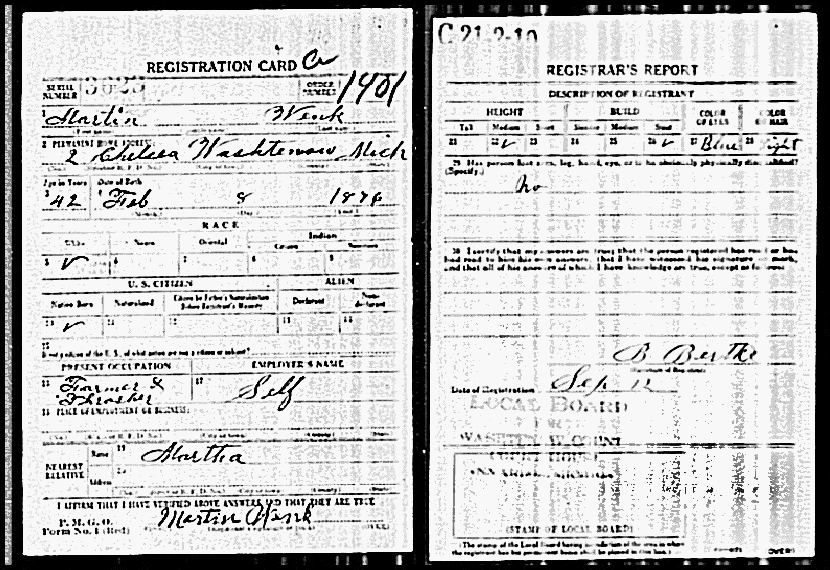 REGISTRATION CARD
SERIAL NUMBER 3625
ORDER NUMBER 1401
1 Martin Wenk
2 PERMANENT HOME ADDRESS
2 Chelsea Washtenaw Mich
Age in Years Date of Birth
3 42 4 Feb 8 1876
(Month.) (Day.) (Year.)
RACE
White Negro Oriental Indian
Citizen Noncitizen
5 ✓ 6 7 8 9
U. S. CITIZEN ALIEN
Native Born Naturalized Citizen by Father's Naturalization Before Registrant's Majority Declarant Non-declarant
10 ✓ 11 12 13 14
15
If not a citizen of the U. S., of what nation are you a citizen or subject?
PRESENT OCCUPATION EMPLOYER'S NAME
16 Farmer & Thrasher 17 Self
18 PLACE OF EMPLOYMENT OR BUSINESS
NEAREST RELATIVE
Name 19 Martha
Address 20
I AFFIRM THAT I HAVE VERIFIED ABOVE ANSWERS AND THAT THEY ARE TRUE
P. M. G. O.
Form No. 1 (Red)
Martin Wenk
C 21-2-10
REGISTRAR'S REPORT
DESCRIPTION OF REGISTRANT
HEIGHT BUILD COLOR OF EYES COLOR OF HAIR
Tall Medium Short Slender Medium Stout
21 22 ✓ 23 24 25 26 ✓ 27 Blue 28 Light
29 Has person lost arm, leg, hand, eye, or is he obviously physically disqualified?
(Specify.)
No
30 I certify that my answers are true; that the person registered has read or has
had read to him his own answers; that I have witnessed his signature or mark,
and that all of his answers of which I have knowledge are true, except as follows:
B Bertke
Date of Registration Sep 12
LOCAL BOARD
FOR
WASHTENAW COUNTY
COURT HOUSE
ANN ARBOR, MICHIGAN
(STAMP OF LOCAL BOARD)
(The stamp of the Local Board having jurisdiction of the area in which
the registrant has his permanent home shall be placed in this box.)
(OVER)